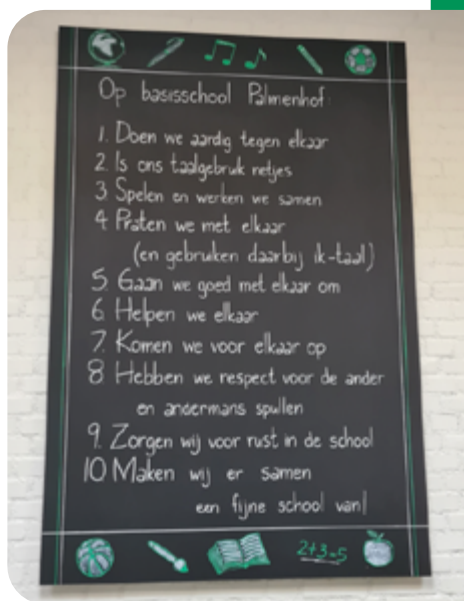 Op basisschool Palmenhof:
1. Doen we aardig tegen elkaar
2. Is ons taalgebruik netjes
3. Spelen en werken we samen
4 Praten we met elkaar
(en gebruiken daarbij ik-taal)
5. Gaan we goed met elkaar om
6. Helpen we elkaar
7. Komen we voor elkaar op
8 Hebben we respect voor de ander
en andermans spullen
9. Zorgen wij voor rust in de school
10 Maken wij er samen
een fijne school van!
2+3=5